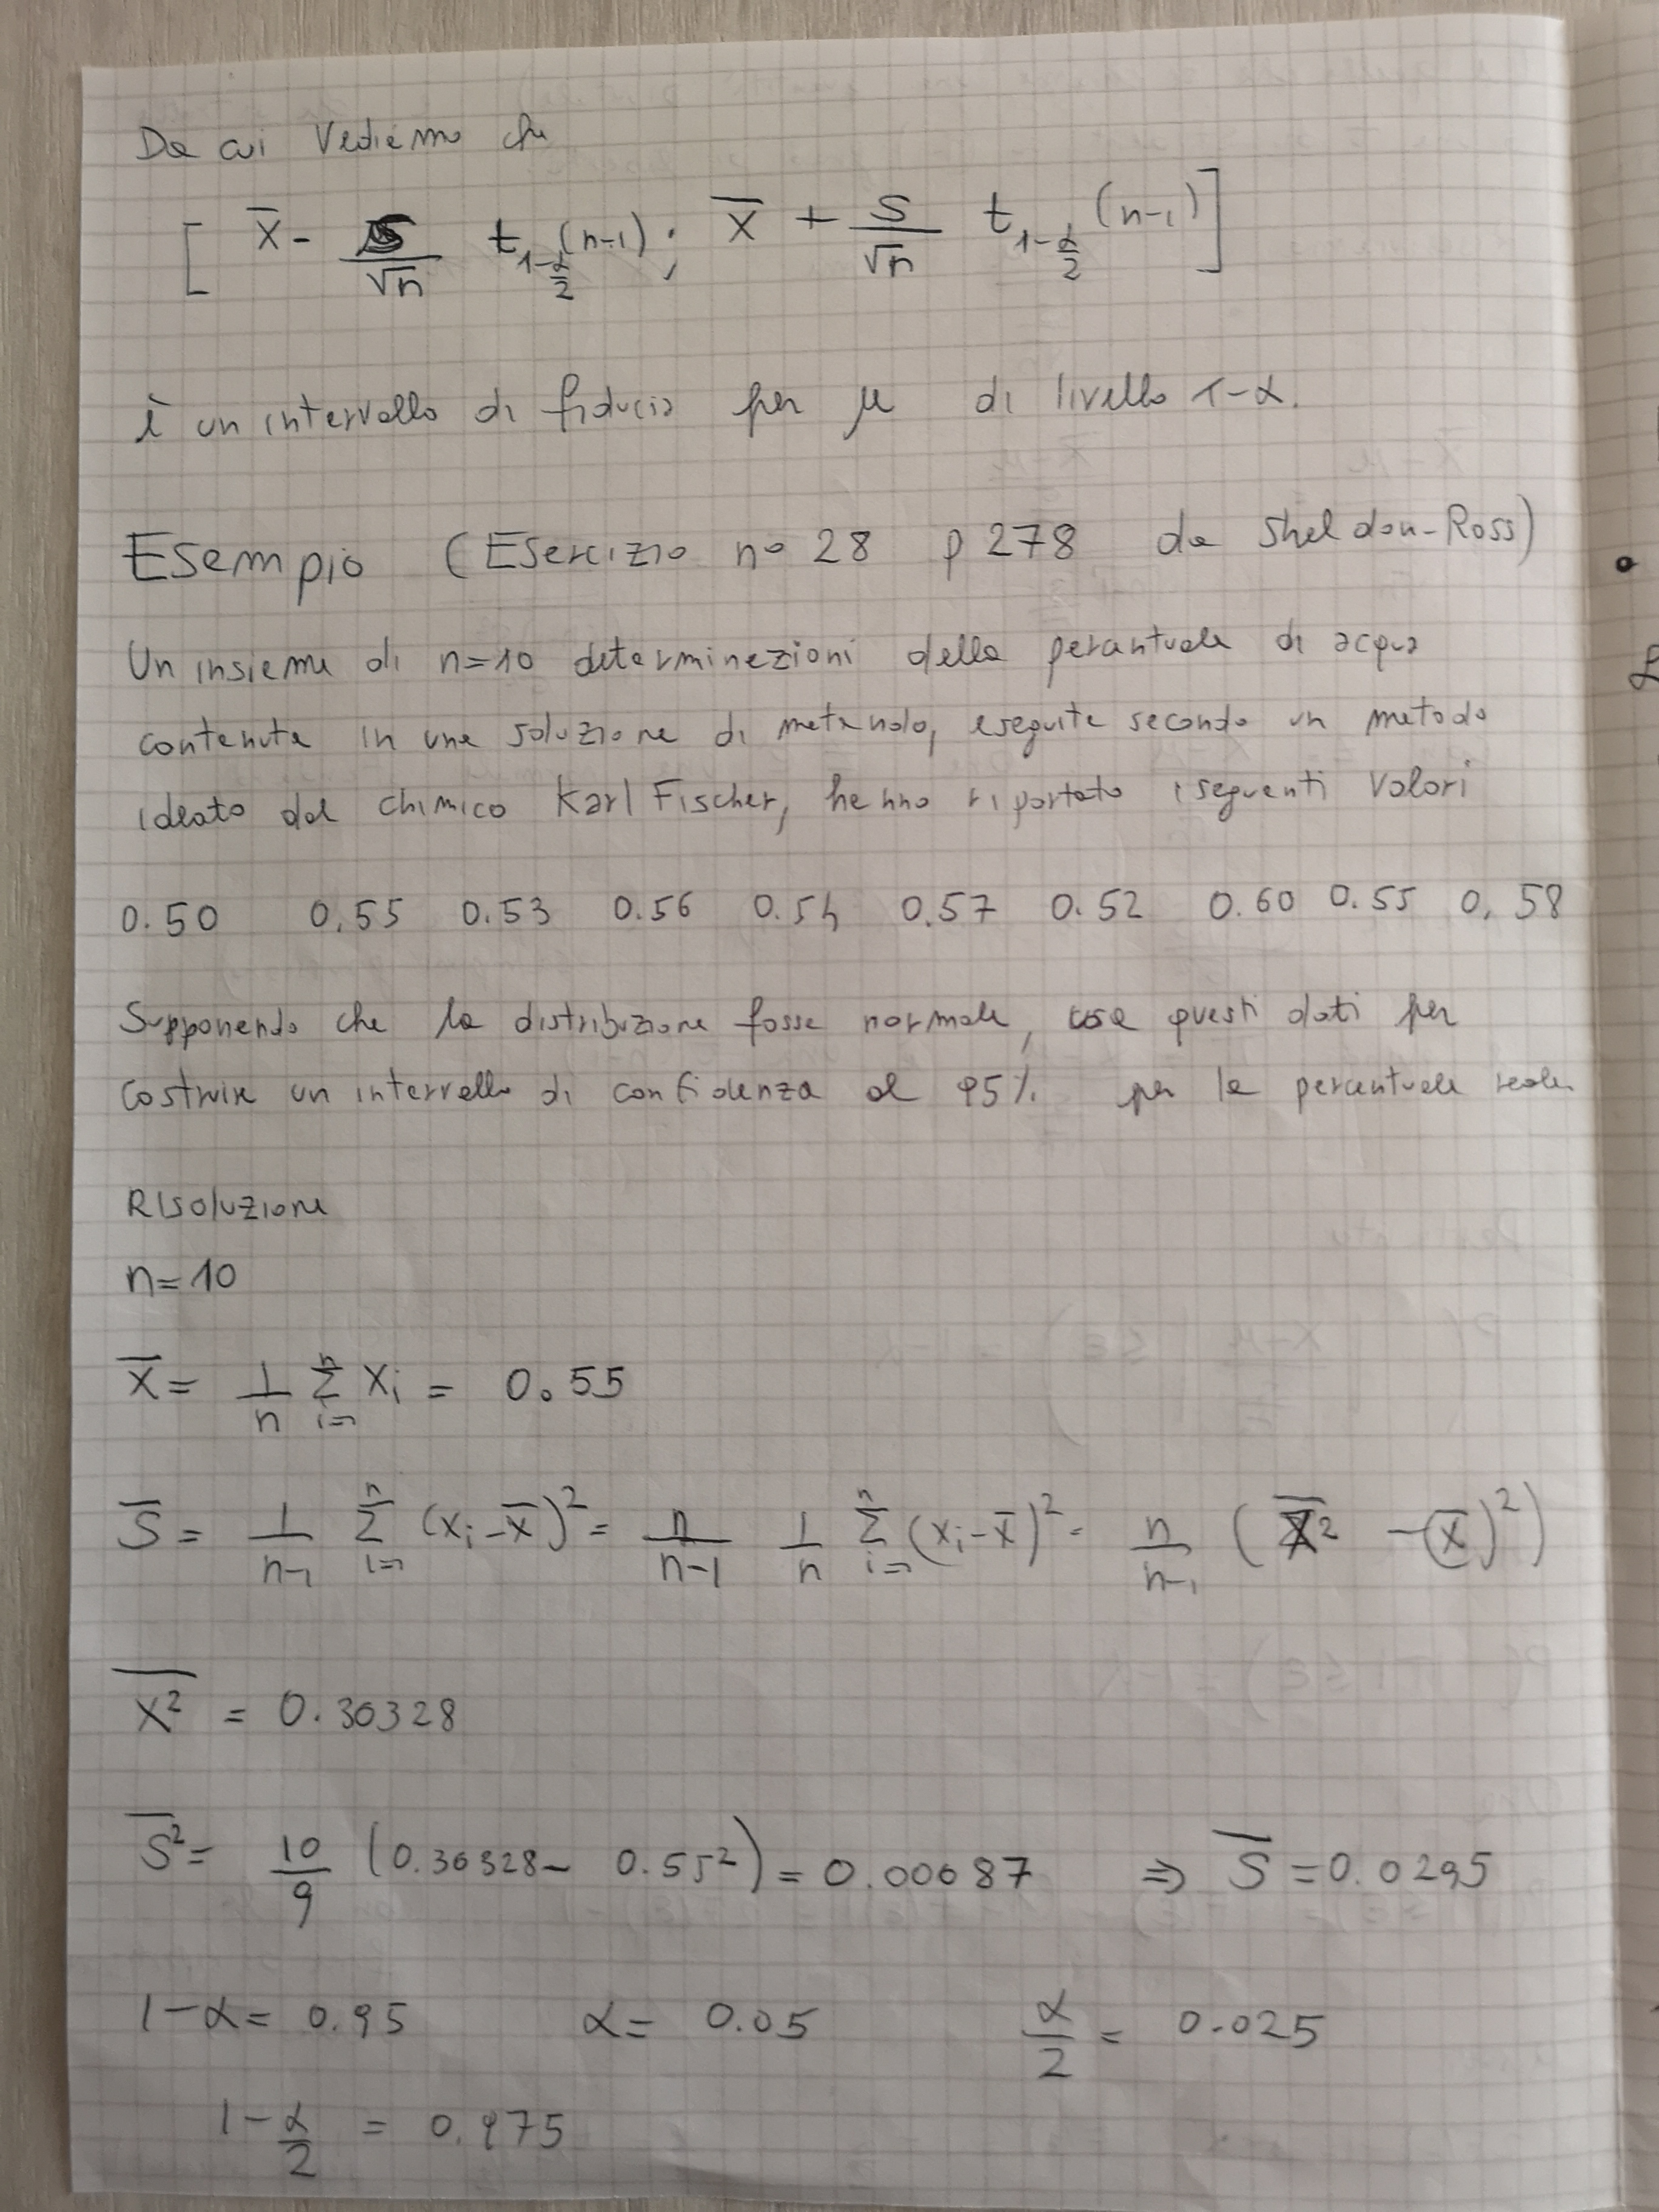 Da cui vediamo che
[ x̄ - S/√n t_{1-α/2}(n-1) ; x̄ + S/√n t_{1-α/2}(n-1) ]
è un intervallo di fiducia per μ di livello 1-α.
Esempio (Esercizio n° 28 p 278 da Sheldon-Ross)
Un insieme di n=10 determinazioni della percentuale di acqua
contenuta in una soluzione di metanolo, eseguite secondo un metodo
ideato dal chimico Karl Fischer, hanno riportato i seguenti valori
0.50 0.55 0.53 0.56 0.54 0.57 0.52 0.60 0.55 0.58
Supponendo che la distribuzione fosse normale, usa questi dati per
costruire un intervallo di confidenza al 95% per la percentuale reale
Risoluzione
n=10
x̄ = 1/n Σ_{i=1}^{n} x_i = 0.55
S̄ = 1/(n-1) Σ_{i=1}^{n} (x_i - x̄)² = n/(n-1) 1/n Σ_{i=1}^{n} (x_i - x̄)² = n/(n-1) ( \overline{x²} - (x̄)² )
\overline{x²} = 0.30328
S̄² = 10/9 (0.30328 - 0.55²) = 0.00087 ⇒ S̄ = 0.0295
1-α = 0.95 α = 0.05 α/2 = 0.025
1-α/2 = 0.975